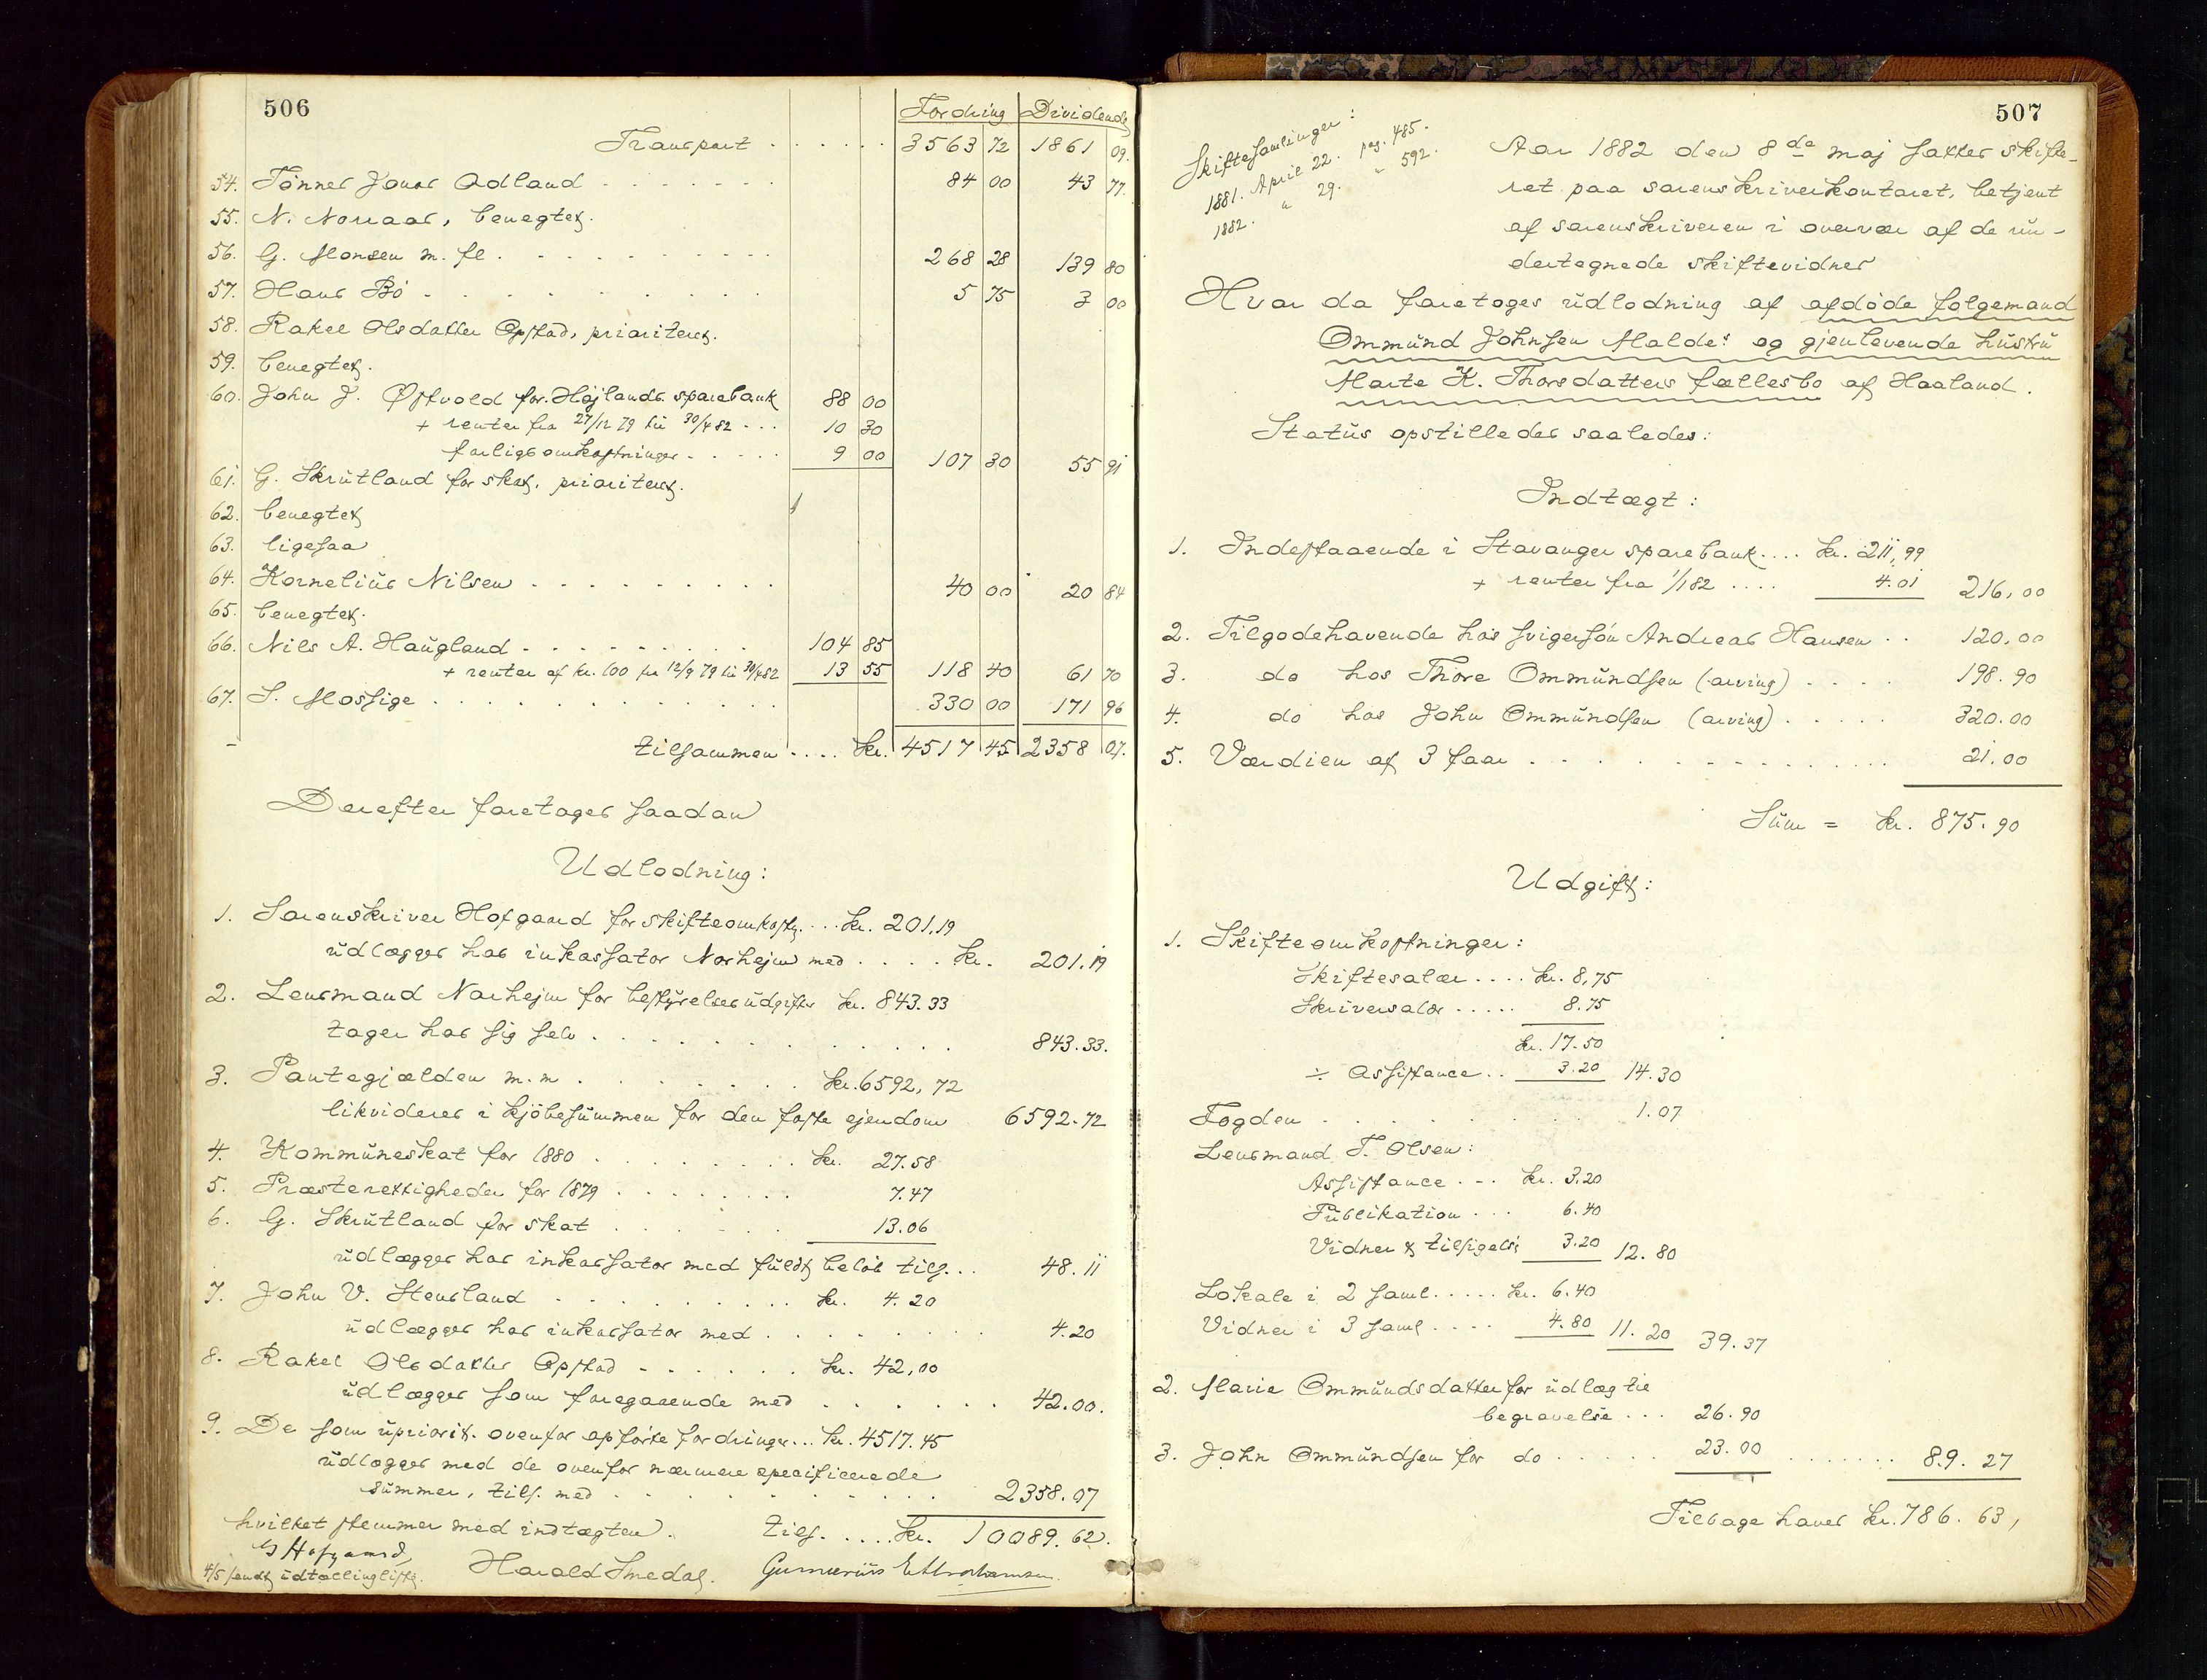 506
Fordring Dividende
Transport . . . . . . 3563 72 1861 09.
54. Tönnes Jonas Odland . . . . . . . 84 00 43 77.
55. N. Norraas, benegtet.
56. G. Monsen m. fl. . . . . . . . . . . 268 28 139 80
57. Hans Bö . . . . . . . . . . 5 75 3 00
58. Rakel Olsdatter Opstad, prioriteret.
59. benegtet.
60. John J. Østvold for. Højlands sparebank 88 00
+ renter fra 27/12 79 til 30/4 82 . . . 10 30
forligsomkostninger . . . . . 9 00 107 30 55 91
61. G. Skrütland for skat, prioriteret.
62. benegtet
63. ligesaa
64. Kornelius Nilsen . . . . . . . . . 40 00 20 84
65. benegtet.
66. Nils A. Haugland . . . . . . . . . 104 85
+ renter af kr. 100 fra 12/9 79 til 30/4 82 13 55 118 40 61 70
67. S. Mossige . . . . . . . . . . . . . 330 00 171 96
tilsammen . . . . kr. 4517 45 2358 07.
Derefter foretages saadan
Udlodning:
1. Sorenskriver Hofgaard for skifteomkostg. . . . kr. 201.19
udlægges hos inkassator Norhejm med . . . . kr. 201.19
2. Lensmand Norhejm for bestyrelsesudgifter kr. 843.33
tager hos sig selv . . . . . . . . . . . . . 843.33.
3. Pantegjælden m. m . . . . . . . . kr. 6592,72
likvideres i kjöbesummen for den faste ejendom 6592.72
4. Kommuneskat for 1880 . . . . . . . . kr. 27.58
5. Præsterettigheder for 1879 . . . . . . . 7.47
6. G. Skrutland for skat . . . . . . 13.06
udlægges hos inkassator med fuldt belöb tils. . . 48.11
7. John V. Stensland . . . . . . . . . . kr. 4.20
udlægges hos inkassator med . . . . . . . . 4.20
8. Rakel Olsdatter Opstad . . . . . . kr. 42,00
udlægges som foregaaende med . . . . . . 42.00.
9. De som upriorit. ovenfor opförte fordringer . . . kr. 4517.45
udlægges med de ovenfor nærmere specificerede
summer, tils. med . . . . . . . . . . 2358.07
hvilket stemmer med indtægten. tils. . . . . kr. 10089.62.
G Hofgaard,
4/5 sendt udtællingliste. Harald Smedal. Gunnerius E Abrahamsen
507
Skiftesamlinger:
1881. April 22. pag. 485.
1882. " 29. " 592.
Aar 1882 den 8de maj sattes skifte-
ret paa sorenskriverkontoret, betjent
af sorenskriveren i overvær af de un-
dertegnede skiftevidner
Hvor da foretoges udlodning af afdöde folgemand
Ommund Johnsen Malde's og gjenlevende hustru
Marte K. Thorsdatters fællesbo af Haaland.
Status opstilledes saaledes:
Indtægt:
1. Indestaaende i Stavanger sparebank . . . . kr. 211,99
+ renter fra 1/1 82 . . . . 4.01 216,00
2. Tilgodehavende hos svigersön Andreas Hansen . . 120,00
3. do hos Thore Ommundsen (arving) . . . . 198.90
4. do hos John Ommundsen (arving) . . . . . 320.00
5. Værdien af 3 faar . . . . . . . . . . . . . . . . 21.00
Sum = kr. 875.90
Udgift:
1. Skifteomkostninger:
Skiftesalær . . . . kr. 8,75
Skriversalær . . . . . 8.75
kr. 17.50
÷ Assistance . . 3.20 14.30
Fogden . . . . . . . . . 1.07
Lensmand T. Olsen:
Assistance . . . kr. 3.20
Publikation . . . 6.40
Vidner & tilsigelse 3.20 12.80
Lokale i 2 saml. . . . . kr. 6.40
Vidner i 3 saml . . . . 4.80 11.20 39.37
2. Marie Ommundsdatter for udlæg til
begravelse . . . 26.90
3. John Ommundsen for do . . . . . 23.00 . . . . . . . 89.27
Tilbage haves kr. 786.63,